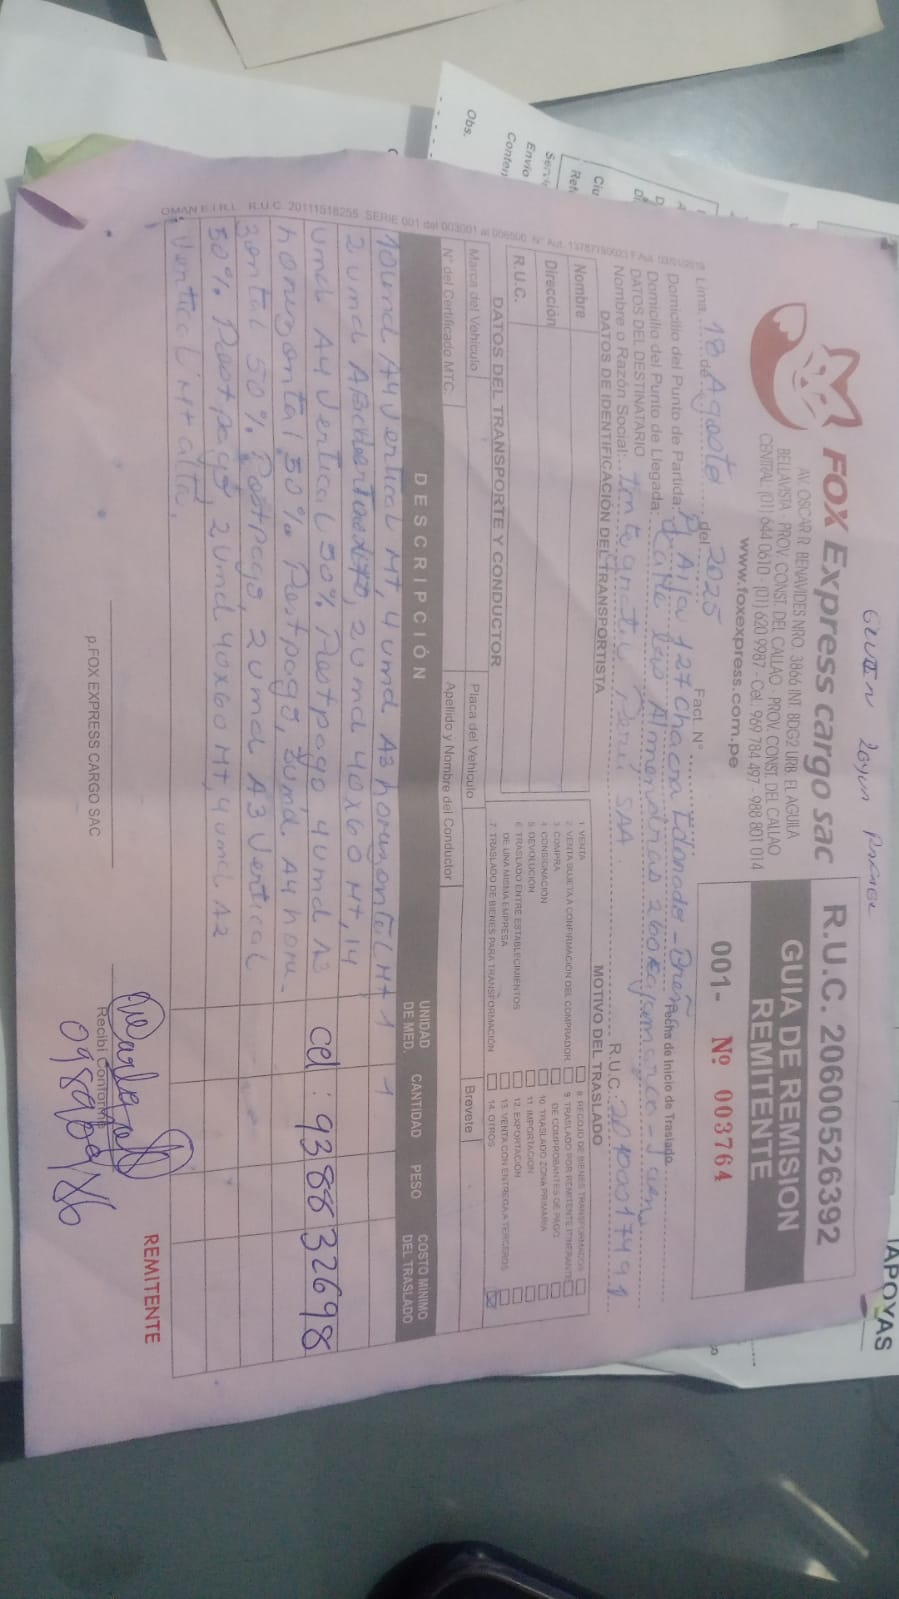 GUIA DE REMISION
REMITENTE
R.U.C. 20600526392
001- Nº 003764
FOX Express cargo sac
AV. OSCAR R. BENAVIDES NRO. 3866 INT. BDG2 URB. EL AGUILA
BELLAVISTA - PROV. CONST. DEL CALLAO - PROV. CONST. DEL CALLAO
CENTRAL (01) 644 0610 - (01) 620 9987 - Cel. 969 784 497 - 988 801 014
www.foxexpress.com.pe
Lima, 18 de Agosto del 2025 Fact. N°
Fecha de Inicio de Traslado
Domicilio del Punto de Partida: 127 Chacra - Breña
Domicilio del Punto de Llegada: Calle Los Almendras 260 Cajamarca - Juen
DATOS DEL DESTINATARIO
Nombre o Razón Social: Integratel Peru SAA R.U.C.: 20100017491
DATOS DE IDENTIFICACIÓN DEL TRANSPORTISTA
MOTIVO DEL TRASLADO
Nombre
Dirección
R.U.C.
1. VENTA
2. VENTA SUJETA A CONFIRMACION DEL COMPRADOR
3. COMPRA
4. CONSIGNACIÓN
5. DEVOLUCIÓN
6. TRASLADO ENTRE ESTABLECIMIENTOS
DE UNA MISMA EMPRESA
7. TRASLADO DE BIENES PARA TRANSFORMACIÓN
8. RECOJO DE BIENES TRANSFORMADOS
9. TRASLADO POR REMITENTE ITINERANTE
DE COMPROBANTES DE PAGO
10. TRASLADO ZONA PRIMARIA
11. IMPORTACION
12. EXPORTACIÓN
13. VENTA CON ENTREGA A TERCEROS
14. OTROS
DATOS DEL TRANSPORTE Y CONDUCTOR
Marca del Vehículo Placa del Vehículo Brevete
N° del Certificado MTC. Apellido y Nombre del Conductor
DESCRIPCIÓN
UNIDAD DE MED. CANTIDAD PESO COSTO MINIMO DEL TRASLADO
10 und A4 Vertical Mt, 4 und A3 horizontal Mt 1 1
2 und 2 und 40x60 Mt, 14
und A4 Vertical 50% Postpago 4 und A3 cel: 938832698
horizontal 50% Postpago, und A4 hori-
zontal 50% Postpago, 2 und A3 Vertical
50% Postpago, 2 und 40x60 Mt, 4 und A2
Vertical Mt alta.
p.FOX EXPRESS CARGO SAC
Recibí Conforme
REMITENTE
OMAN E.I.R.L. R.U.C. 20111518255 SERIE 001 del 003001 al 006500
APOYAS
Obs.
Envio